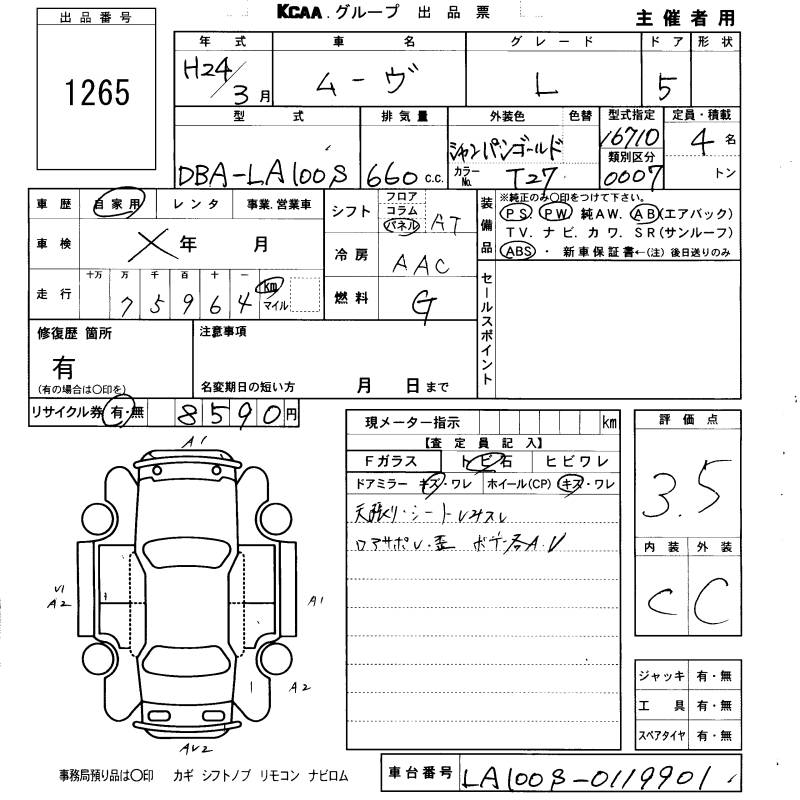 KCAA.グループ 出品票
主催者用
出品番号
1265
年式 車名 グレード ドア 形状
H24/3月 ムーヴ L 5
型式 排気量 外装色 色替 型式指定 定員・積載
DBA-LA100S 660 c.c. シャンパンゴールド 16710 4名
カラーNo. T27 類別区分 0007 トン
車歴 自家用 レンタ 事業.営業車
車検 ×年 月
走行 十万 万 千 百 十 一 km マイル
7 5 9 6 4
シフト フロア コラム パネル AT
冷房 AAC
燃料 G
装備品 ※純正のみ〇印をつけて下さい。
PS PW 純AW. AB(エアバック)
TV. ナビ. カワ. SR(サンルーフ)
ABS ・ 新車保証書←(注) 後日送りのみ
セールスポイント
修復歴 箇所
有
(有の場合は〇印を)
注意事項
名変期日の短い方 月 日まで
リサイクル券 有・無 8590円
現メーター指示 km
【査定員記入】
Fガラス トビ石 ヒビワレ
ドアミラー キズ・ワレ ホイール(CP) キズ・ワレ
天張り・シートしみスレ
ロアサポし・歪 ボデー各A.V
評価点
3.5
内装 外装
C C
A1
V1
A2
A1
A2
AV2
ジャッキ 有・無
工具 有・無
スペアタイヤ 有・無
事務局預り品は〇印 カギ シフトノブ リモコン ナビロム
車台番号 LA100S-0119901